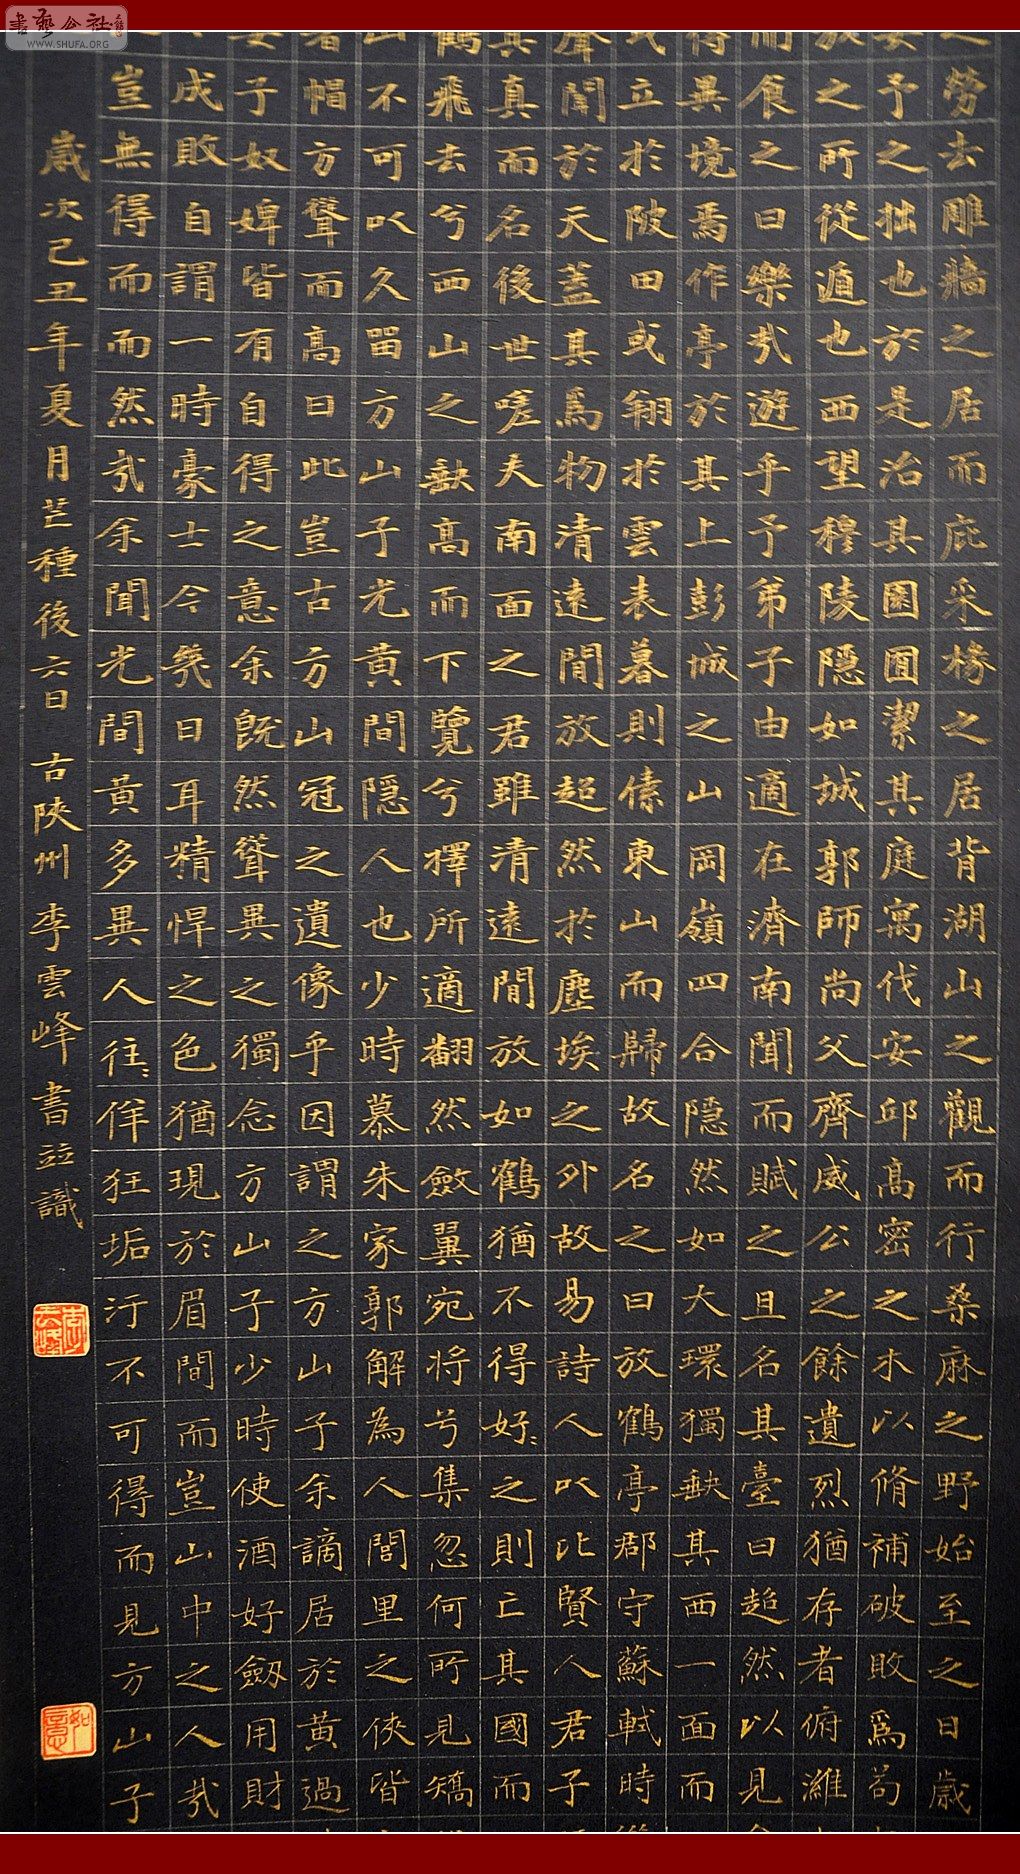 勞去雕牆之居而庇采椽之居背湖山之觀而行桑麻之野始至之日歲
予之拙也於是治其園囿潔其庭寓伐安邱高密之木以脩補破敗爲苟
之所從遁也西望穆陵隱如城郭師尚父齊威公之餘遺烈猶存者俯濰
食之曰樂哉遊乎予弟子由適在濟南聞而賦之且名其臺曰超然以見
異境焉作亭於其上彭城之山岡嶺四合隱然如大環獨缺其西一面而
立於陂田或翔於雲表暮則傃東山而歸故名之曰放鶴亭郡守蘇軾時
聞於天蓋其爲物清遠閒放超然於塵埃之外故易詩人以比賢人君子
真而名後世嗟夫南面之君雖清遠閒放如鶴猶不得好々之則亡其國而
飛去兮西山之缺高而下覽兮擇所適翻然斂翼宛將兮集忽何所見矯
不可以久留方山子光黃間隱人也少時慕朱家郭解為人閭里之俠皆
帽方聳而高曰此豈古方山冠之遺像乎因謂之方山子余謫居於黃過
子奴婢皆有自得之意余既然聳異之獨念方山子少時使酒好劔用財
成敗自謂一時豪士今幾日耳精悍之色猶現於眉間而豈山中之人哉
豈無得而而然哉余聞光間黃多異人往々佯狂垢汙不可得而見方山子
歲次己丑年夏月芒種後六日 古陝州 李雲峰書並識
如意
書藝公社
WWW.SHUFA.ORG